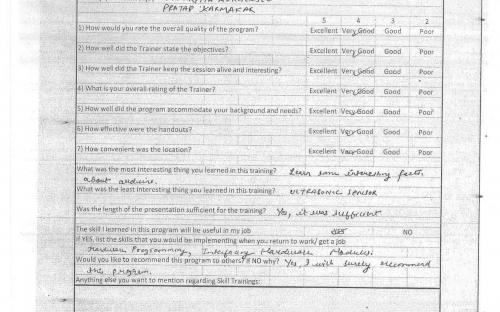 PRATAP KARMAKAR
5 4 3 2
1) How would you rate the overall quality of the program? Excellent Very Good Good Poor
2) How well did the Trainer state the objectives? Excellent Very Good Good Poor
3) How well did the Trainer keep the session alive and interesting? Excellent Very Good Good Poor
4) What is your overall rating of the Trainer? Excellent Very Good Good Poor
5) How well did the program accommodate your background and needs? Excellent Very Good Good Poor
6) How effective were the handouts? Excellent Very Good Good Poor
7) How convenient was the location? Excellent Very Good Good Poor
What was the most interesting thing you learned in this training? Learn some interesting facts
about arduino.
What was the least interesting thing you learned in this training? ULTRASONIC SENSOR
Was the length of the presentation sufficient for the training? Yes, it was sufficient
The skill I learned in this program will be useful in my job YES NO
if YES, list the skills that you would be implementing when you return to work/ get a job
Hardware Programming, Interfacing Hardware Modules.
Would you like to recommend this program to others? If NO why? Yes, I will surely recommend
this program.
Anything else you want to mention regarding Skill Trainings: